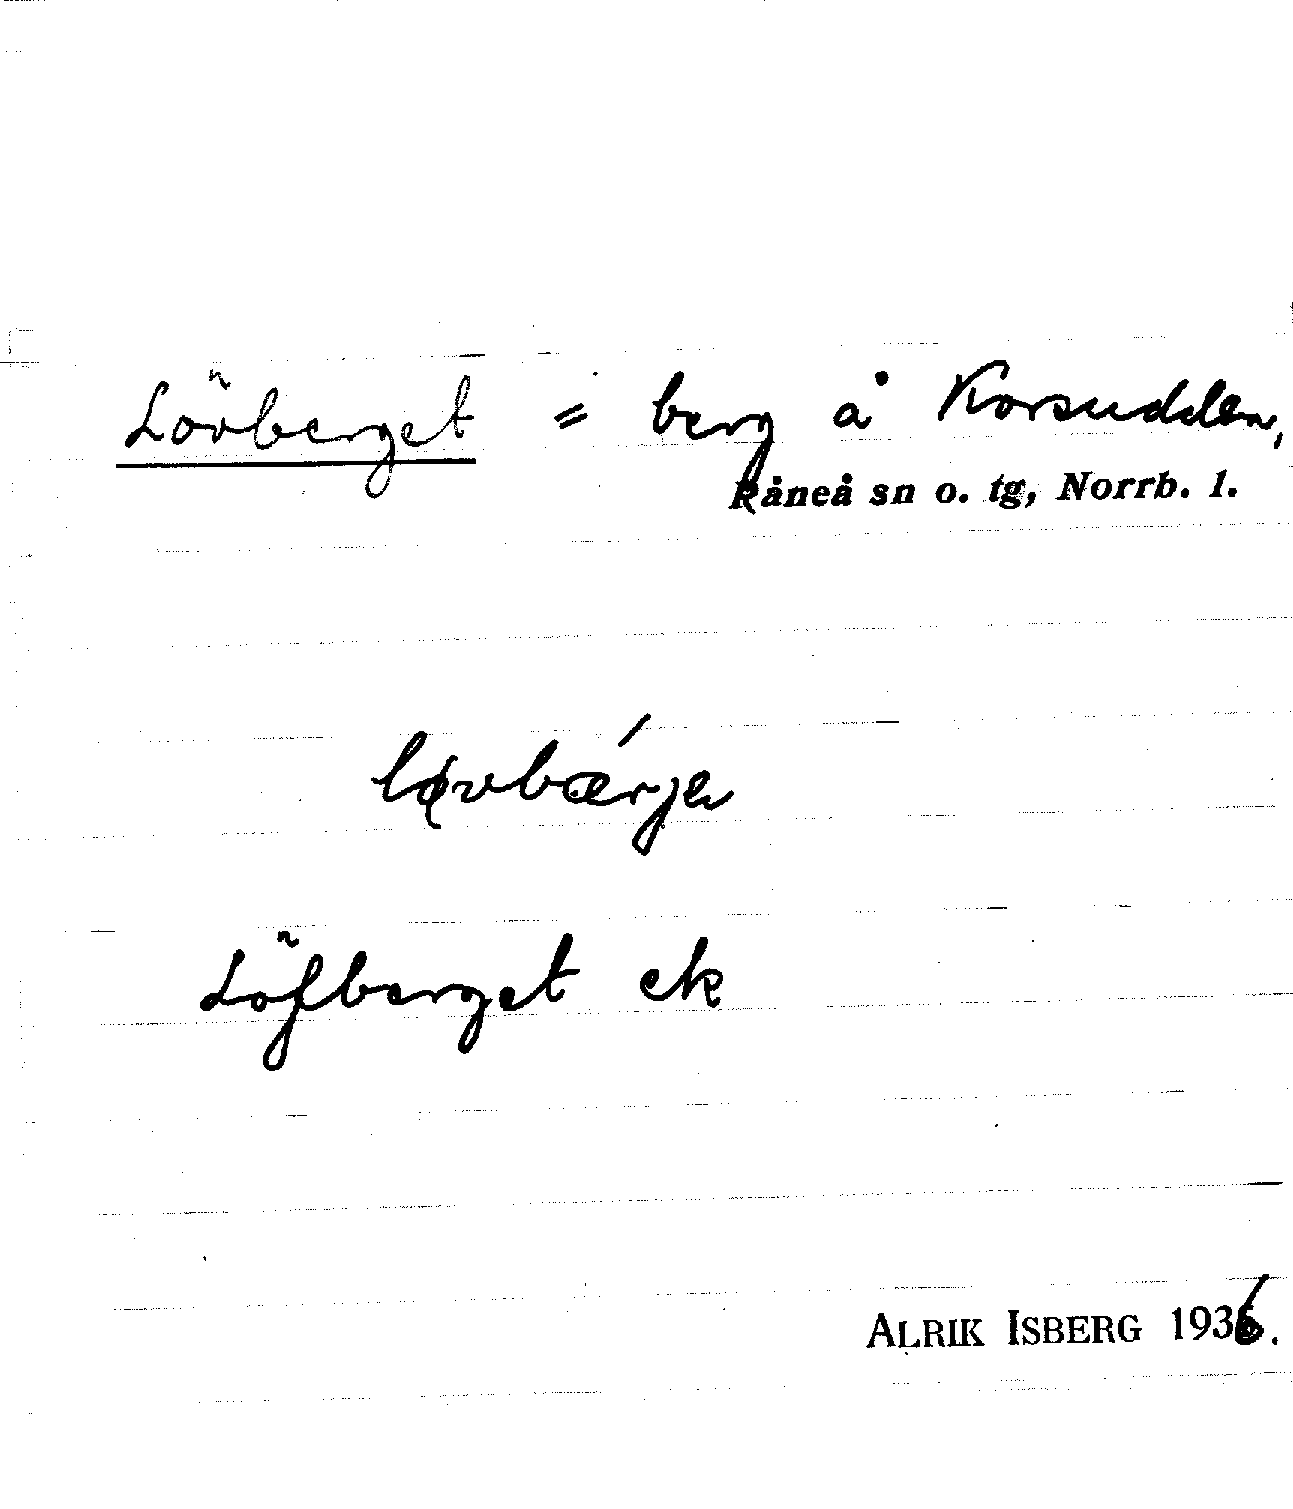 Lövberget = berg å Korsudden,
Råneå sn o. tg, Norrb. l.
løvbærjeɩ
Löfberget ek
ALRIK ISBERG 1936.